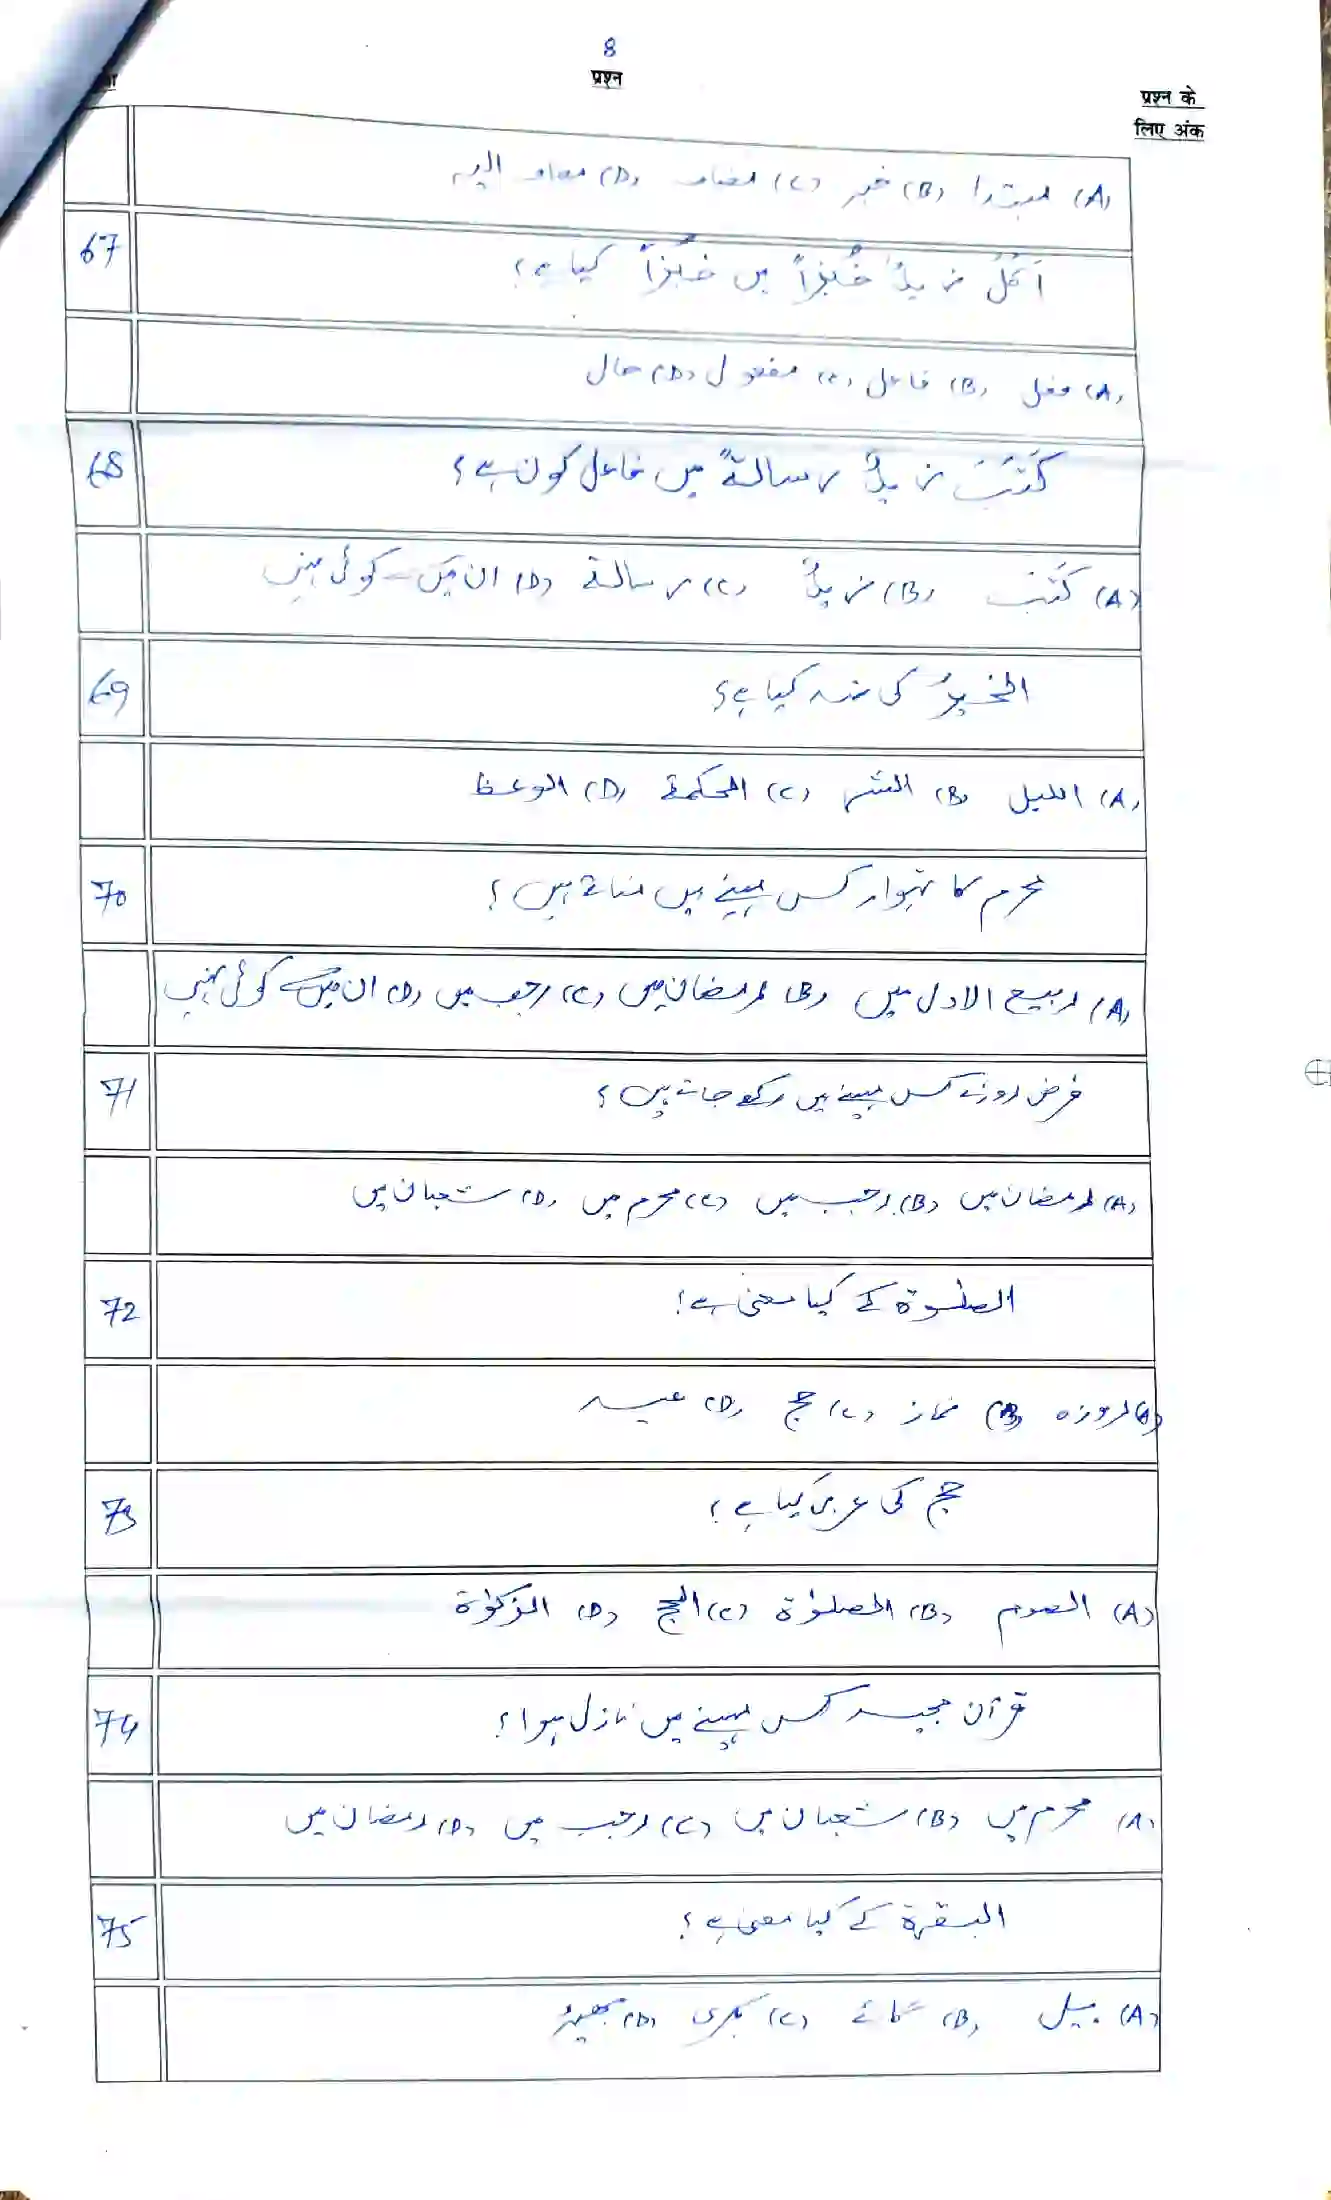 8
प्रश्न
प्रश्न के
लिए अंक
(A) مبتدا (B) خبر (C) مضاف (D) مضاف الیہ
67 اَکَلَ زیدٌ خُبْزاً میں خُبْزاً کیا ہے؟
(A) فعل (B) فاعل (C) مفعول (D) حال
68 کَتَبَ زیدٌ رسالةً میں فاعل کون ہے؟
(A) کَتَبَ (B) زیدٌ (C) رسالة (D) ان میں سے کوئی نہیں
69 الخیرُ کی ضد کیا ہے؟
(A) اللیل (B) الشر (C) الحکمة (D) الوعظ
70 محرم کا تہوار کس مہینے میں مناتے ہیں؟
(A) ربیع الاول میں (B) رمضان میں (C) رجب میں (D) ان میں سے کوئی نہیں
71 فرض روزے کس مہینے میں رکھے جاتے ہیں؟
(A) رمضان میں (B) رجب میں (C) محرم میں (D) شعبان میں
72 الصلوة کے کیا معنی ہے؟
(A) روزہ (B) نماز (C) حج (D) عید
73 حج کی عربی کیا ہے؟
(A) الصوم (B) الصلوٰة (C) الحج (D) الزکوٰة
74 قرآن مجید کس مہینے میں نازل ہوا؟
(A) محرم میں (B) شعبان میں (C) رجب میں (D) رمضان میں
75 البقرة کے کیا معنی ہے؟
(A) بیل (B) گائے (C) بکری (D) بھیڑ